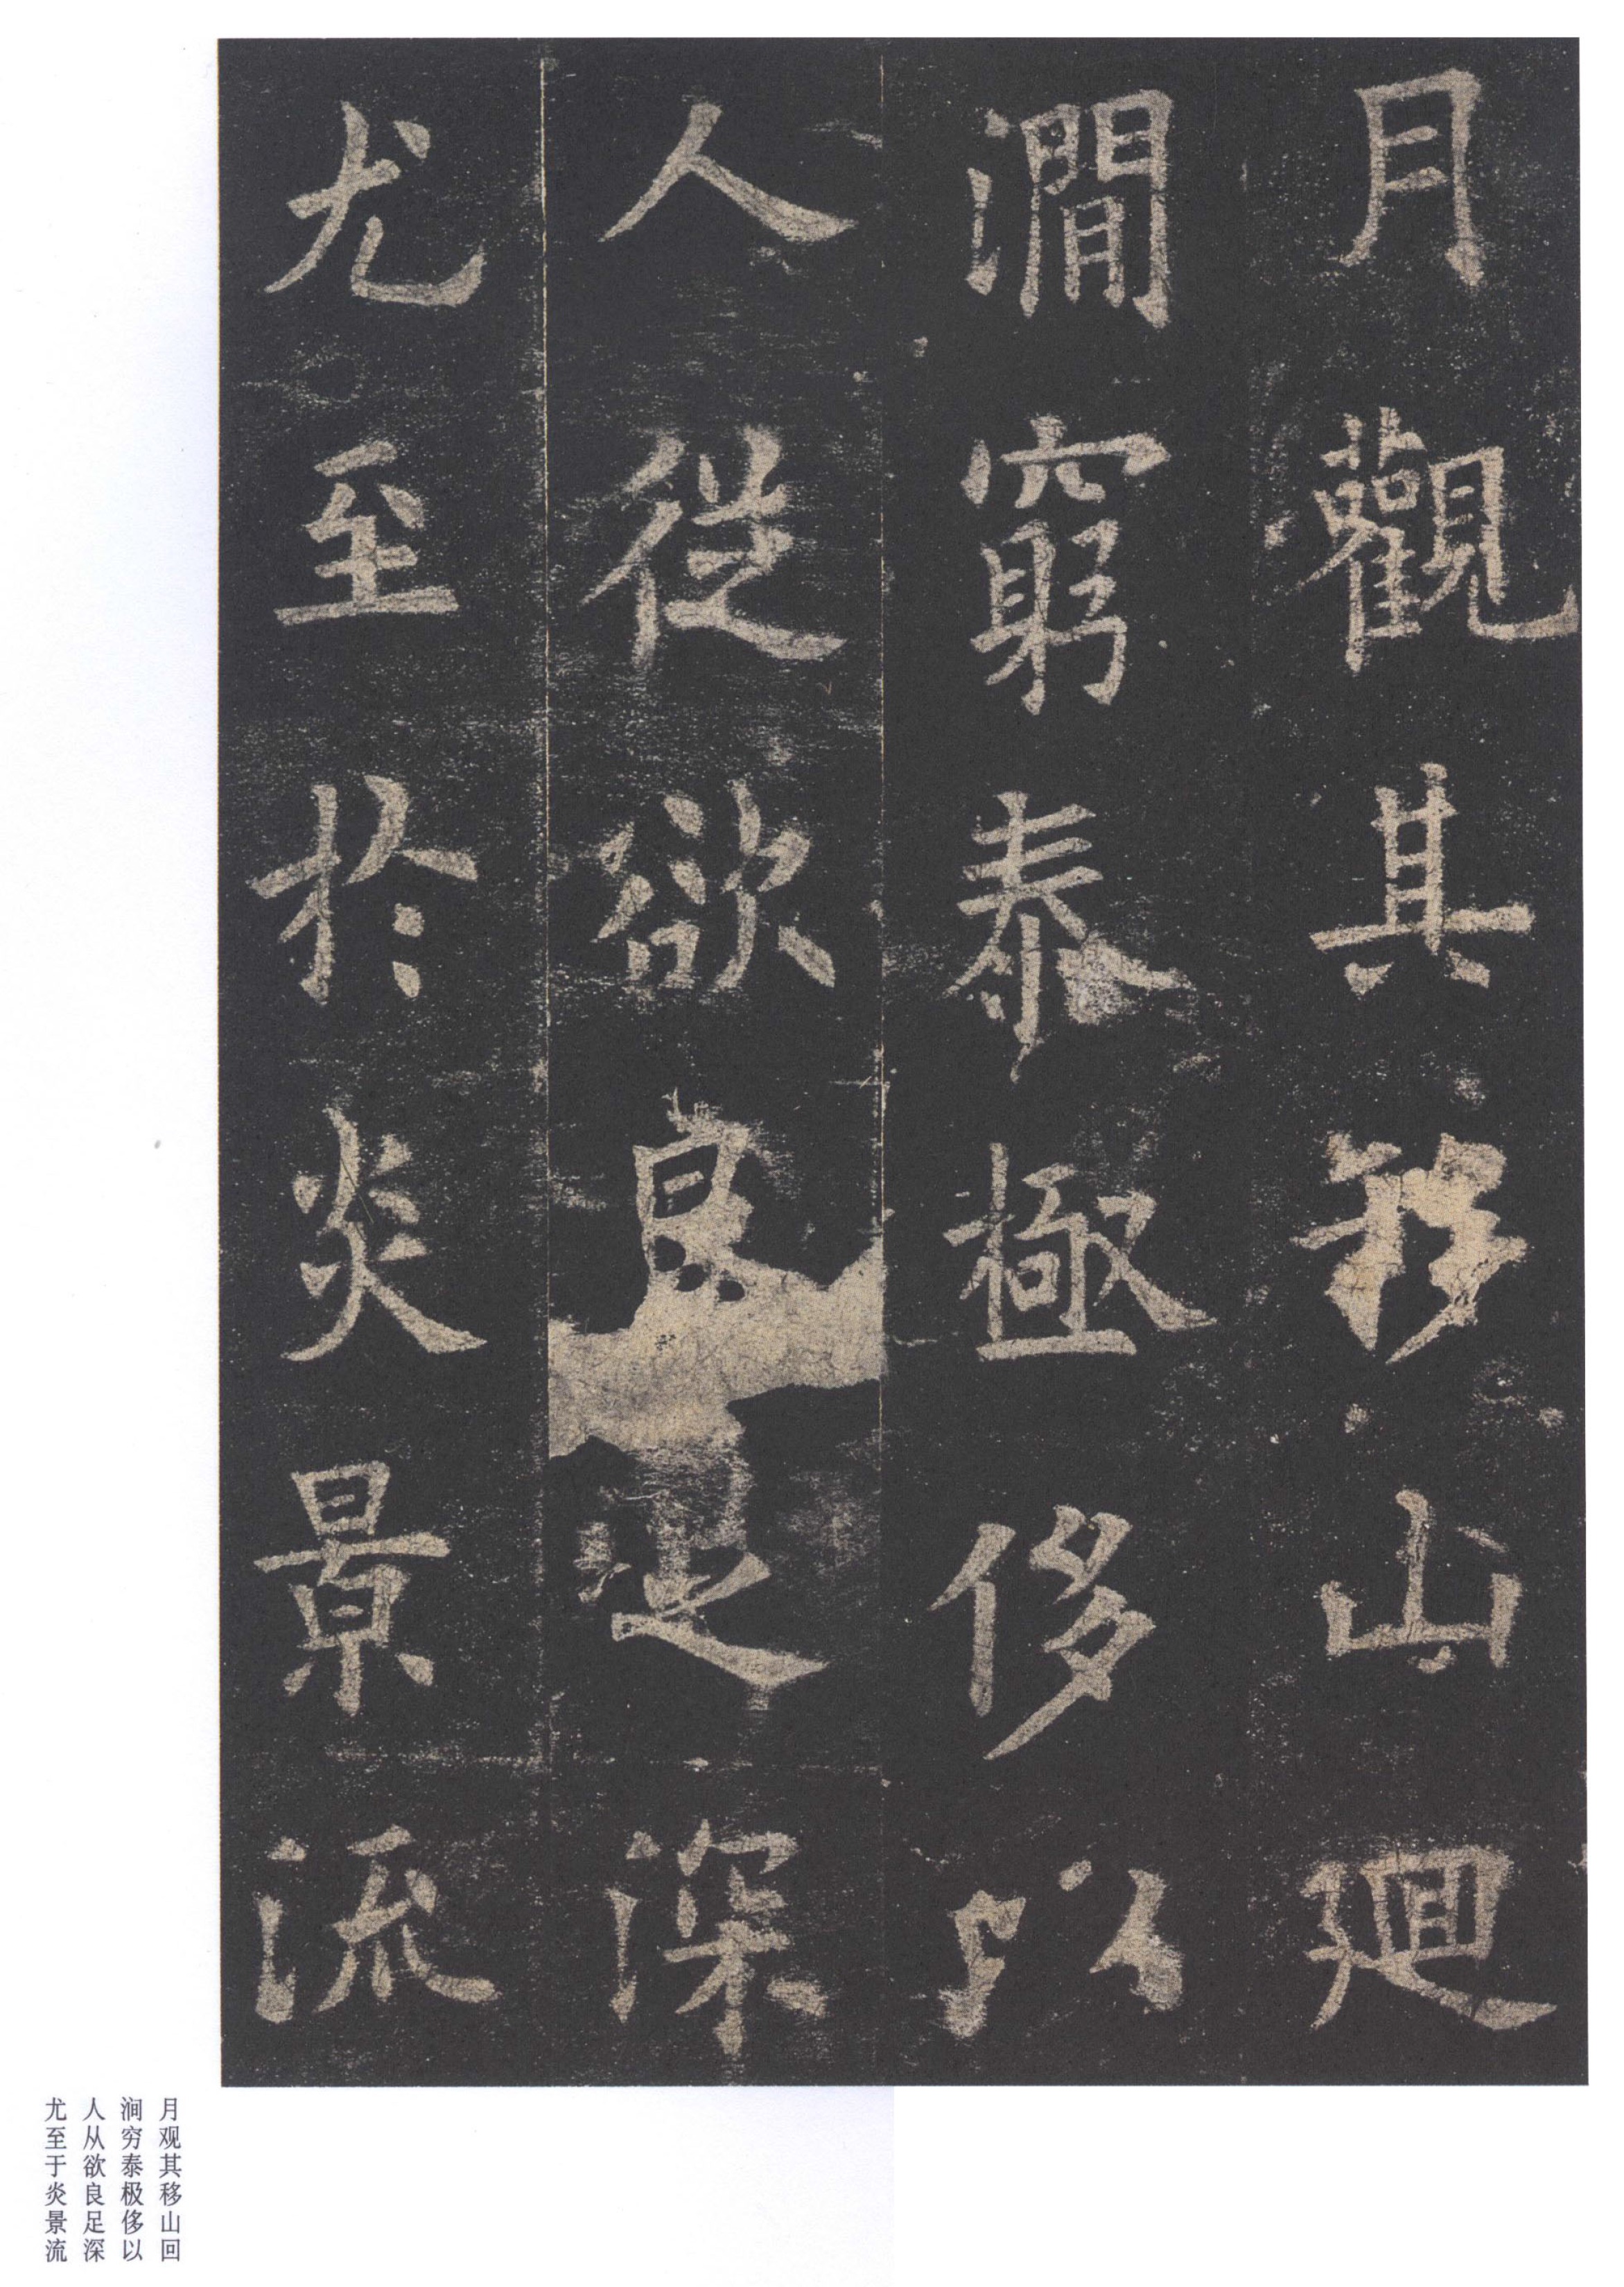 月觀其移山迴
澗窮泰極侈以
人從欲良足深
尤至於炎景流
月观其移山回
涧穷泰极侈以
人从欲良足深
尤至于炎景流